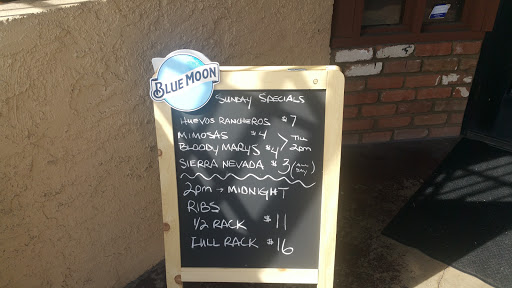 BLUE MOON
SUNDAY SPECIALS
HUEVOS RANCHEROS $7
MIMOSAS $4
BLOODY MARYS $4 > TILL 2PM
SIERRA NEVADA $3 (ALL DAY)
2PM → MIDNIGHT
RIBS
1/2 RACK $11
FULL RACK $16